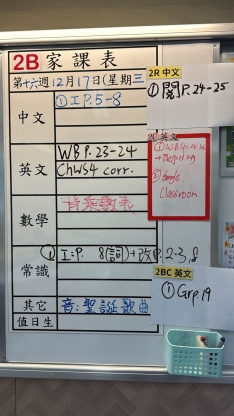 2B 家課表
第十六週12月17日(星期三
中文
①工P.5-8
英文
WB P.23-24
ChWS4 corr.
數學
背乘數表
常識
① 工:P. 8(詞)+改P.2-3,8
其它
音:聖誕歌曲
值日生
2R 中文
①閱P.24-25
英文
① WB
② Google
Classroom
2BC 英文
① Grp.19